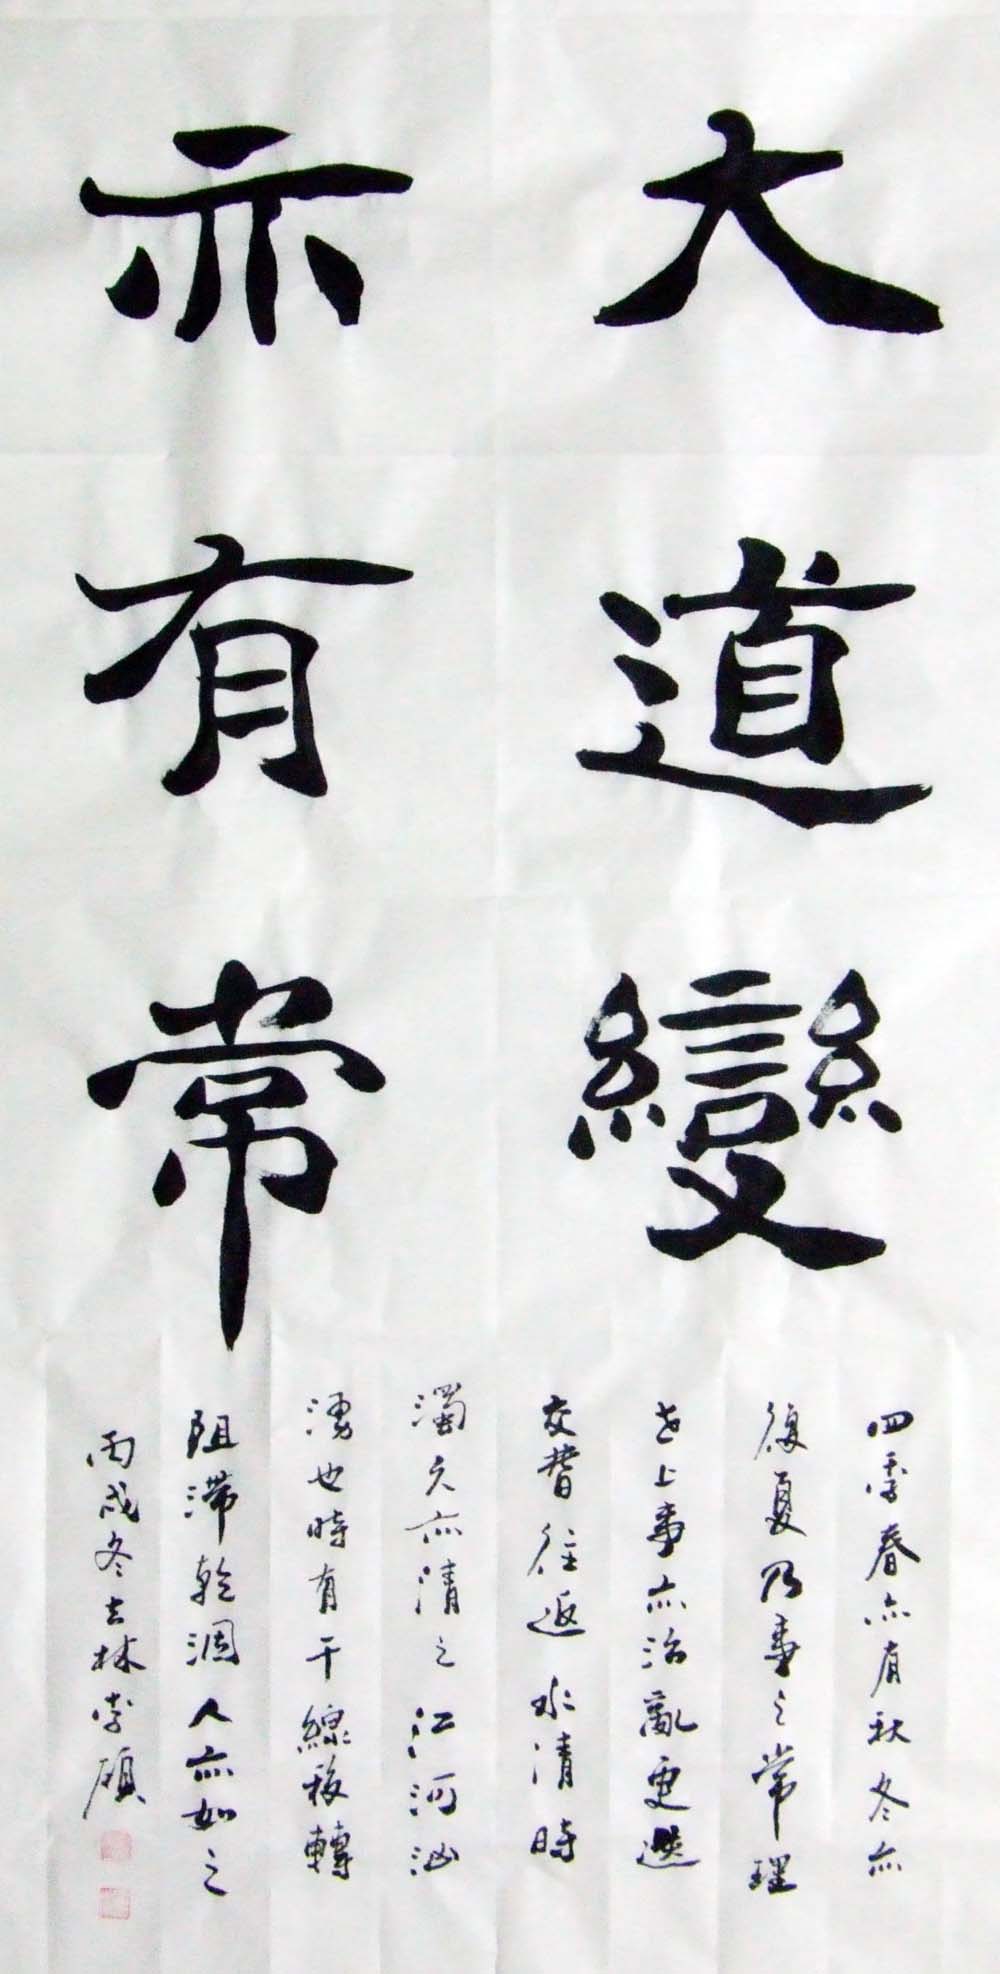 大道變
亦有常
四季春亦有秋冬亦
復夏乃事之常理
世上事亦治亂更迭
交替往返水清時
濁久亦清之江河汹
湧也時有干線移轉
阻滯乾涸人亦如之
丙戌冬吉林李碩